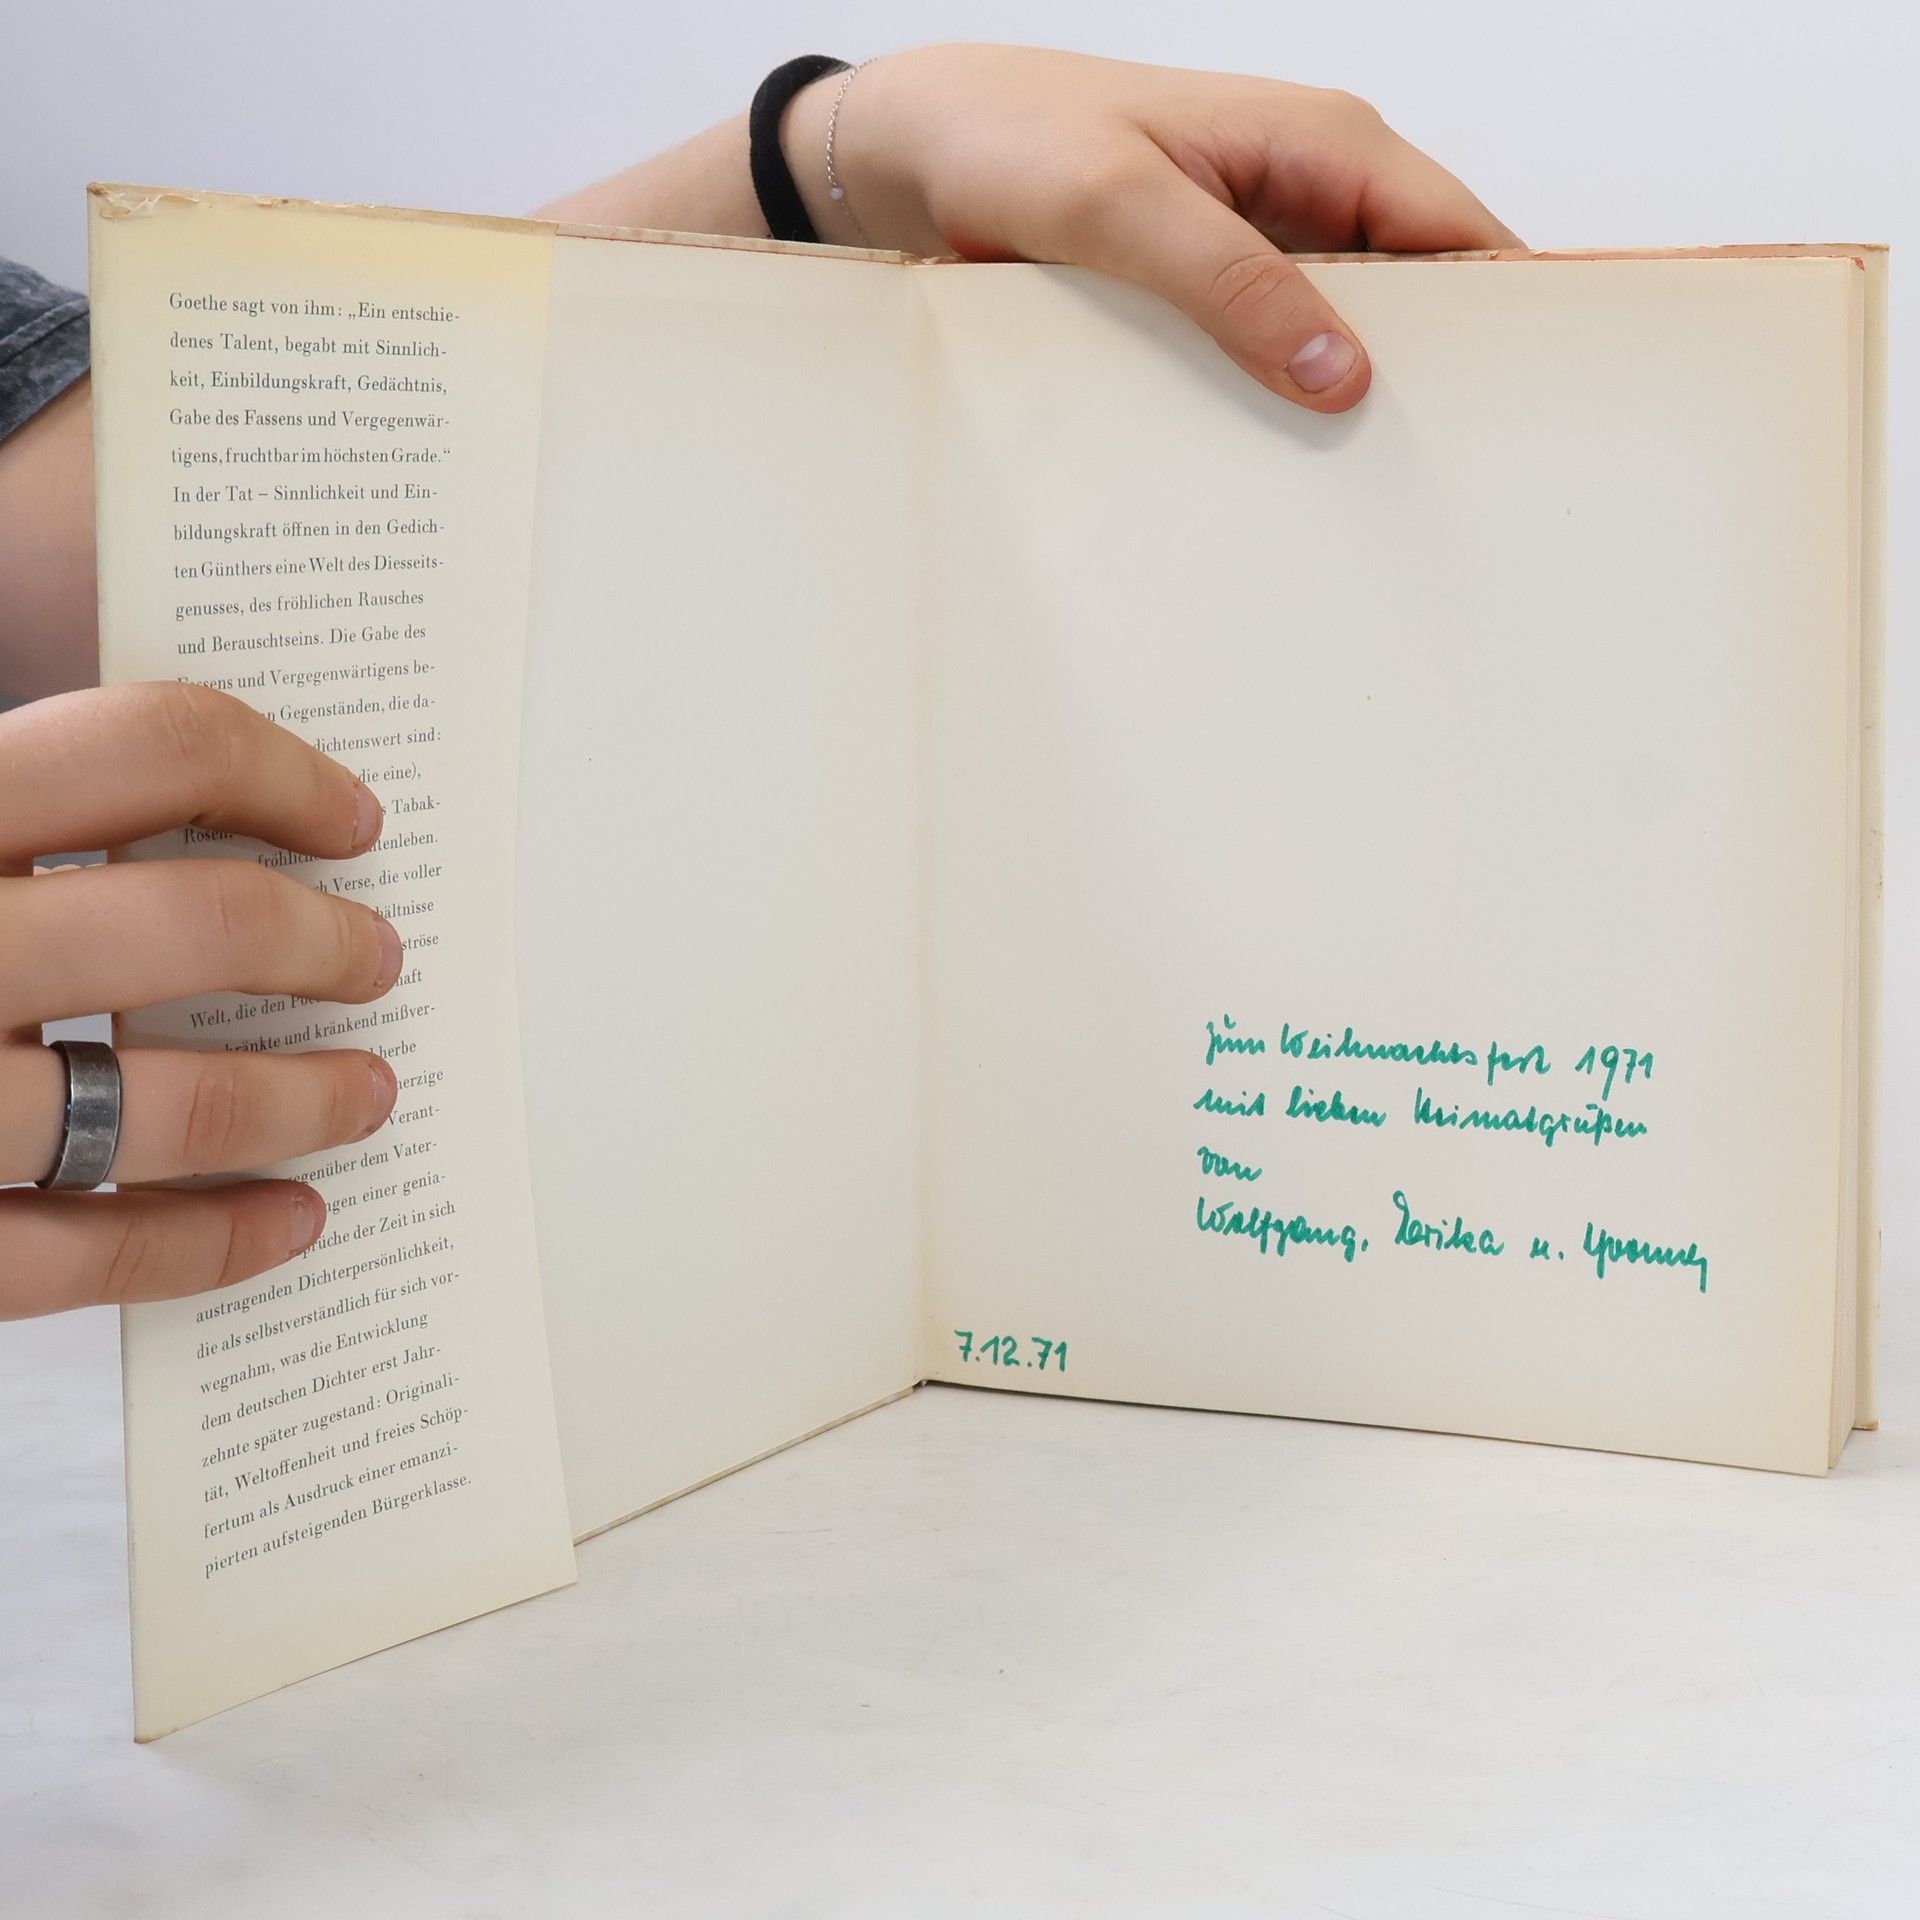 Goethe sagt von ihm: „Ein entschie-
denes Talent, begabt mit Sinnlich-
keit, Einbildungskraft, Gedächtnis,
Gabe des Fassens und Vergegenwär-
tigens, fruchtbar im höchsten Grade.“
In der Tat – Sinnlichkeit und Ein-
bildungskraft öffnen in den Gedich-
ten Günthers eine Welt des Diesseits-
genusses, des fröhlichen Rausches
und Berauschtseins. Die Gabe des
Fassens und Vergegenwärtigens be-
Gegenständen, die da-
dichtenswert sind:
die eine),
Tabak-
Rosen,
tenleben.
Verse, die voller
hältnisse
ströse
haft
Welt, die den
und kränkend mißver-
herbe
herzige
Verant-
gegenüber dem Vater-
ngen einer genia-
sprüche der Zeit in sich
austragenden Dichterpersönlichkeit,
die als selbstverständlich für sich vor-
wegnahm, was die Entwicklung
dem deutschen Dichter erst Jahr-
zehnte später zugestand: Originali-
tät, Weltoffenheit und freies Schöp-
fertum als Ausdruck einer emanzi-
pierten aufsteigenden Bürgerklasse.
Zum Weihnachtsfest 1971
mit lieben Heimatgrüßen
von
Wolfgang, Erika u. Yvonne
7.12.71